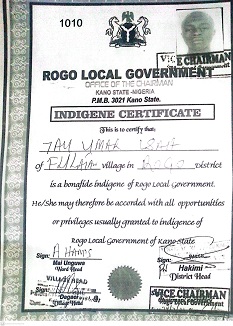 1010
VICE CHAIRMAN
ROGO LOCAL GOVERNMENT
OFFICE OF THE CHAIRMAN
KANO STATE-NIGERIA
P.M.B. 3021 Kano State.
INDIGENE CERTIFICATE
This is to certify that:
UMAR
of village in ROGO District
is a bonafide indigene of Rogo Local Government.
He/she may therefore be accorded with all opportunities
or privileges usually granted to indigence of
Rogo Local Government of Kano state
Sign: Sign:
Mai Unguwa Hakimi
Ward Head District Head
VILLAGE HEAD
Sign: VICE CHAIRMAN
Dagaci